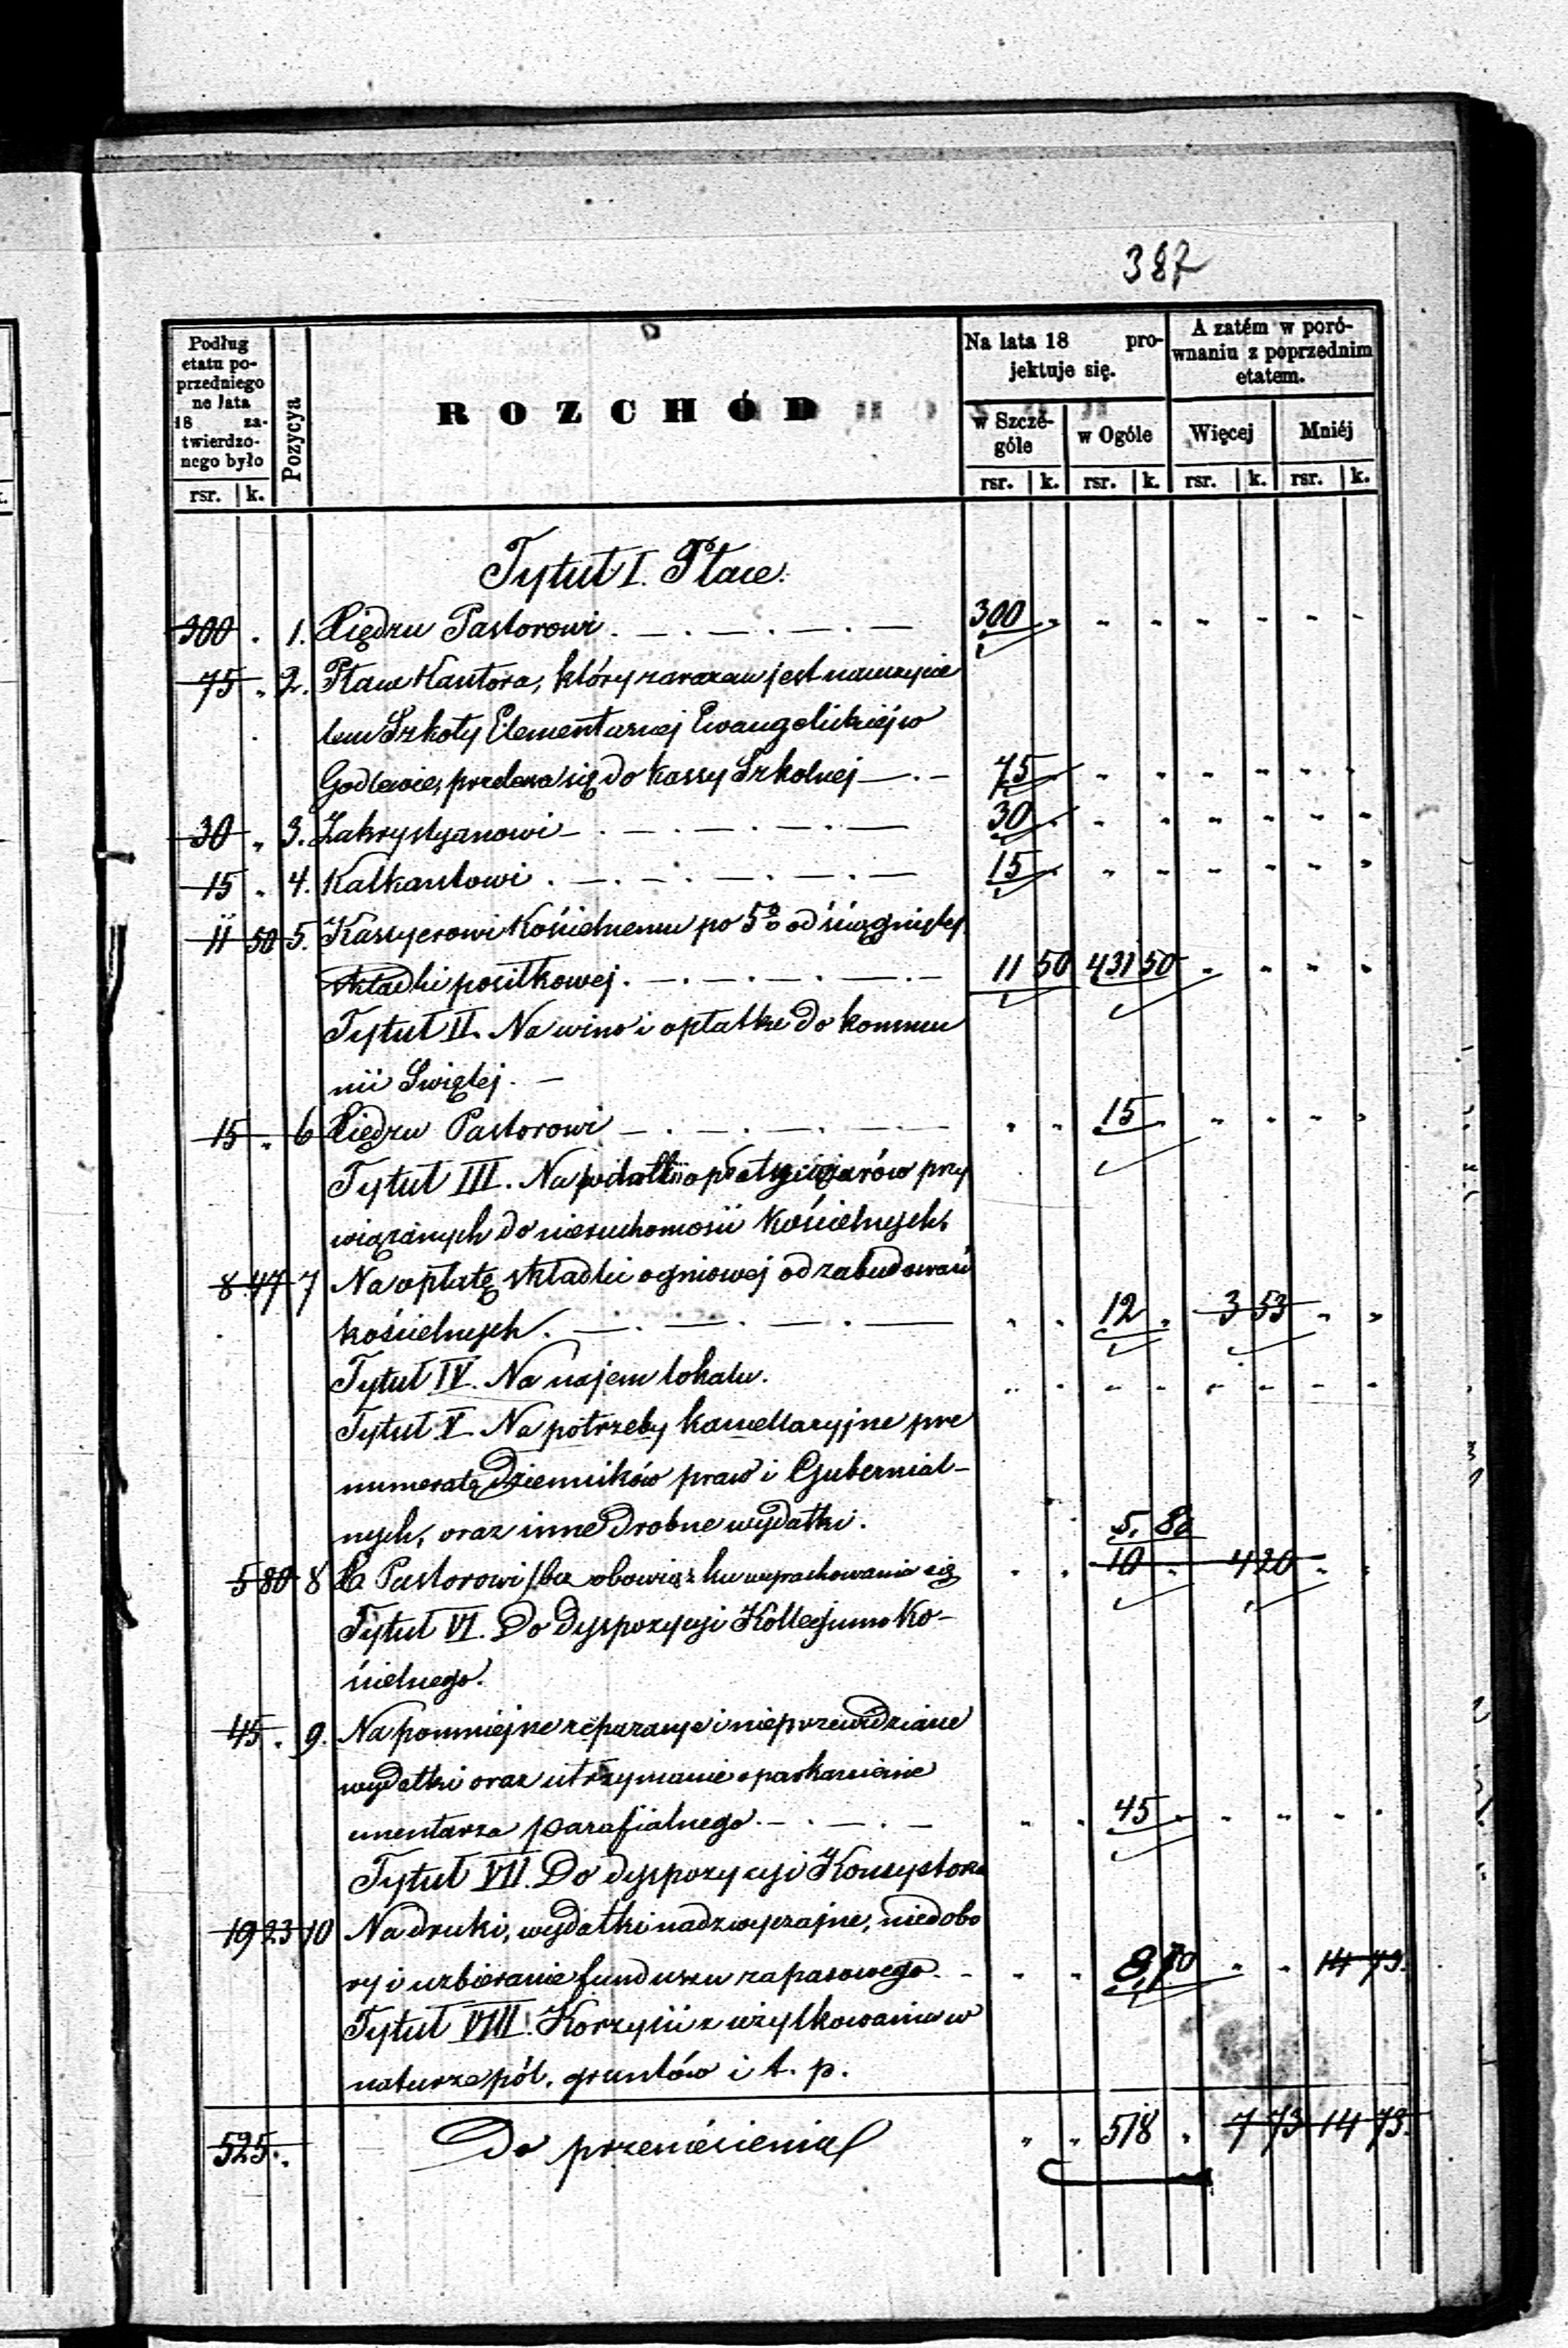 387
Podług etatu poprzedniego na lata 18 zatwierdzonego było
Pozycya
ROZCHÓD
Na lata 18 projektuje się.
A zatém w porównaniu z poprzednim etatem.
w Szczególe
w Ogóle
Więcej
Mniéj
rsr. k. rsr. k. rsr. k. rsr. k. rsr. k.
Tytuł I. Płace.
300 . 1. Xiędzu Pastorowi 300
75 . 2. Płaca Kantora, który zarazem jest nauczycie
lem Szkoły Elementarnej Ewangelickiej w
Godlewie, przelewa się do kassy Szkolnej 75
30 " 3. Zakrystyanowi 30
15 " 4. Kalkantowi 15
11 50 5. Kassyerowi Kościelnemu po 5% od ściągniętej
składki posiłkowej. 11 50 431 50
Tytuł II. Na wino i opłatki do kommu
nii Swiętej.
15 " 6 Xiędzu Pastorowi 15
Tytuł III. Na podatki i opłaty ciężarów przy
wiązanych do nieruchomości Kościelnych
8 47 7 Na opłatę składki ogniowej od zabudowań
kościelnych. 12 " 3 53
Tytuł IV. Na najem lokalu.
Tytuł V. Na potrzeby kancellaryjne pre
numeratę Dzienników praw i Gubernial-
nych, oraz inne drobne wydatki. 5. 80
5 80 8 X Pastorowi /bez obowiązku wyrachowania się 10 . 4 20
Tytuł VI. Do dyspozycyi Kollegium Ko-
ścielnego.
45 . 9. Na pomniejsze reparacye i nieprzewidziane
wydatki oraz utrzymanie i parkanienie
cmentarza parafialnego. 45
Tytuł VII. Do dyspozycyi Konsystorza
19 23 10 Na druki, wydatki nadzwyczajne, niedobo
ry i uzbieranie funduszu zapasowego. 8,70 14 73.
Tytuł VIII. Korzyści z użytkowania w
naturze pól, gruntów i t. p.
525. Do przeniesienia 518 . 7 73 14 73.